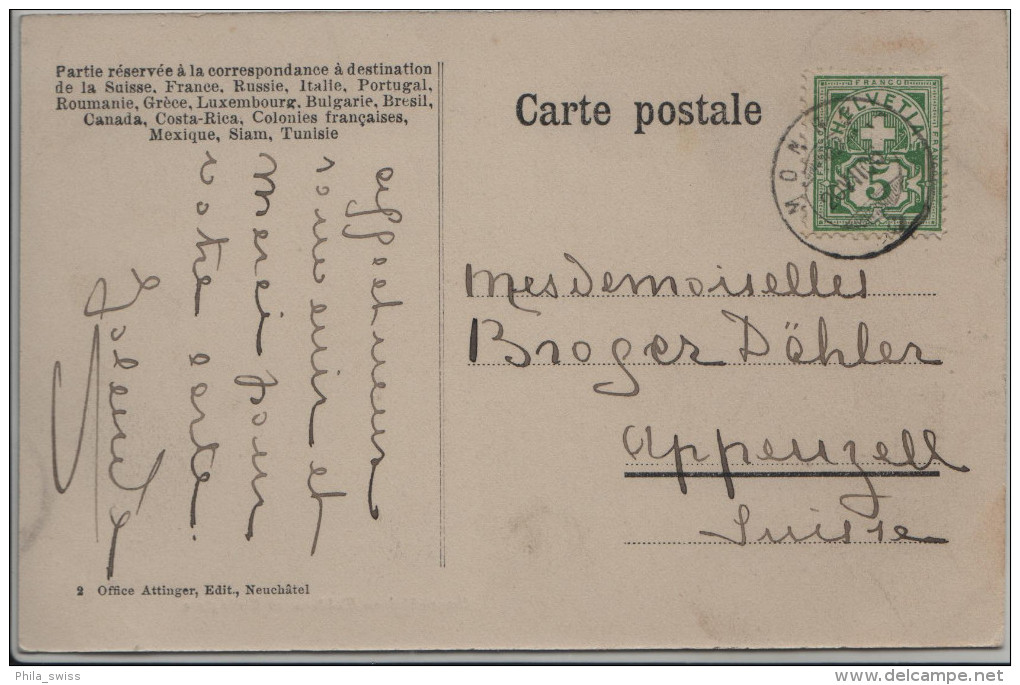 Partie réservée à la correspondance à destination
de la Suisse, France, Russie, Italie, Portugal,
Roumanie, Grèce, Luxembourg, Bulgarie, Bresil,
Canada, Costa-Rica, Colonies françaises,
Mexique, Siam, Tunisie
Carte postale
FRANCO
HELVETIA
5
MON
affectueux
souvenir et
merci pour
votre carte
Mesdemoiselles
Broger Dähler
Appenzell
Suisse
2 Office Attinger, Edit., Neuchâtel
Phila_swiss